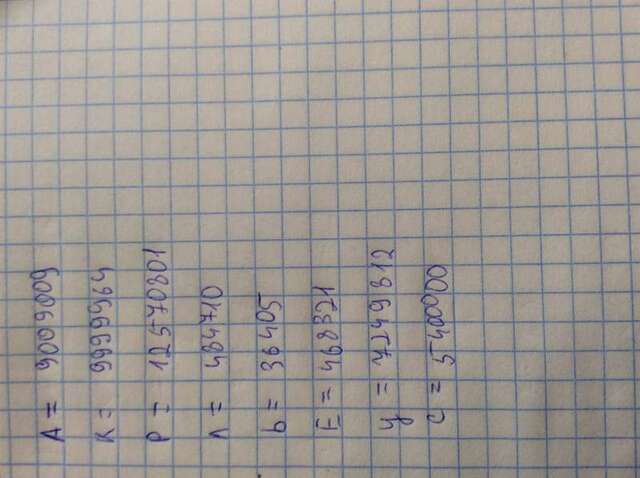 A = 9009009
K = 9999964
P = 12570801
л = 484710
b = 36405
E = 468321
y = 7249812
C = 5400000